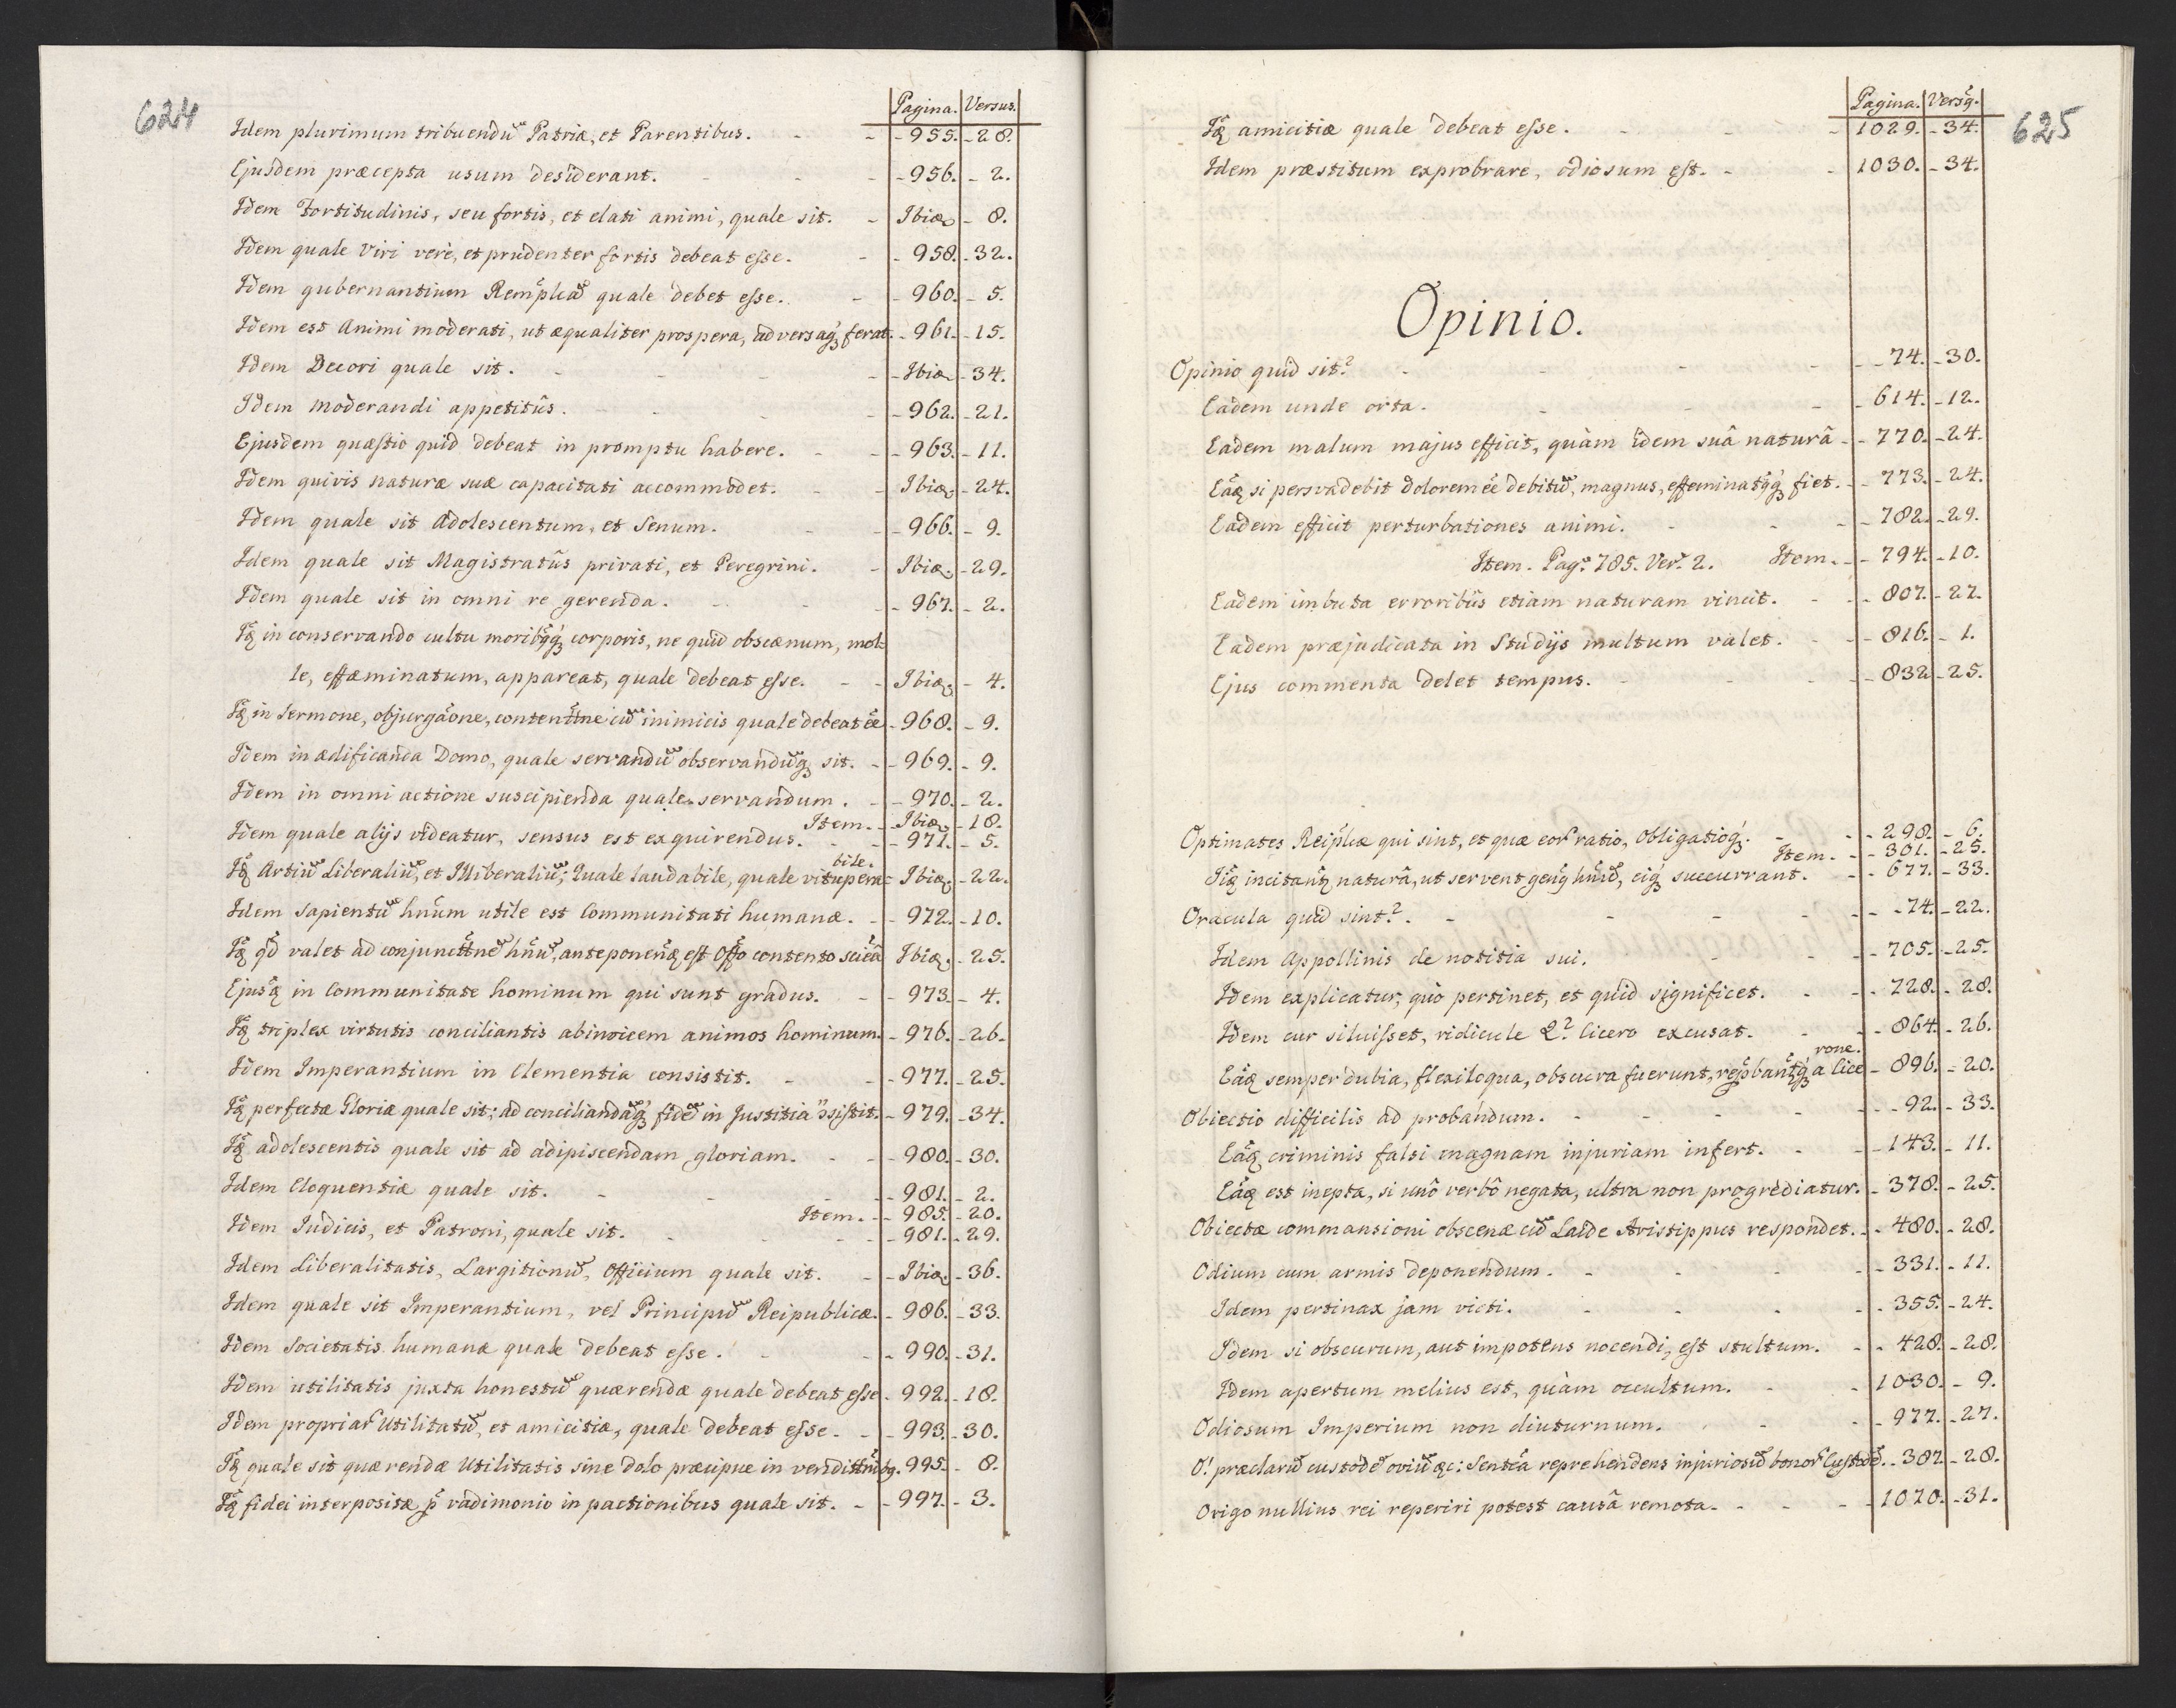 624
Pagina. Versus.
Idem plurimum tribuendũ Patriæ, et Parentibus. - - 955. - 28.
Ejusdem præcepta usum desiderant. - - 956. - 2.
Idem Fortitudinis, seu fortis, et elati animi, quale sit. - Ibiđ - 8.
Idem quale Viri verè, et prudenter fortis debeat esse. - 958. - 32.
Idem gubernantium Remplcã quale debet esse. - 960. - 5.
Idem est Animi moderati, ut æqualiter prospera, adversaq; ferat. - 961. - 15.
Idem Decori quale sit. - - - Ibiđ - 34.
Idem moderandi appetitûs. - - - 962. - 21.
Ejusdem quæstio quid debeat in promptu habere. - - 963. - 11.
Idem quivis naturæ suæ capacitati accommodet. - - Ibiđ - 24.
Idem quale sit Adolescentum, et Senum. - - 966. - 9.
Idem quale sit Magistratûs privati, et Peregrini. - Ibiđ. - 29.
Idem quale sit in omni re gerenda. - - - 967. - 2.
Iđ in conservando cultu moribqq; corporis, ne quid obscænum, mol=
le, effæminatum, appareat, quale debeat esse. - - Ibiđ - 4.
Iđ in Sermone, objurgãone, contenttne cũ inimicis quale debeat ẽe - 968. - 9.
Idem in ædificanda Domo, quale servandũ observandũq; sit. - - 969. - 9.
Idem in omni actione suscipienda quale servandum. - - 970. - 2.
Item. - - Ibiđ - 18.
Idem quale alijs videatur, sensus est exquirendus. - - 971. - 5.
Iđ Artiũ Liberaliũ, et Illiberaliũ; Quale laudabile, quale vitupera= bile. Ibiđ - 22.
Idem sapientũ hnũm utile est Communitati humanæ. - - 972. - 10.
Iđ qđ valet ad conjuncttnẽ hnũ, anteponenđ est Offo contento sciẽa Ibiđ. - 25.
Ejusđ in Communitate hominum qui sunt gradus. - - 973. - 4.
Iđ triplex virtutis conciliantis abinvicem animos hominum. - 976. - 26.
Idem Imperantium in Clementia consistit. - - - 977. - 25.
Iđ perfectæ Gloriæ quale sit; ad conciliandãq; fidẽ in Justitia ɔsistit. - 979. - 34.
Iđ adolescentis quale sit ad adipiscendam gloriam. - - - 980. - 30.
Idem Eloquentiæ quale sit. - - - - 981. - 2.
Item. - - 985. - 20.
Idem Judicis, et Patroni, quale sit. - - - 981. - 29.
Idem Liberalitatis, Largitionũ, Officium quale sit. - - Ibiđ. - 36.
Idem quale sit Imperantium, vel Principũ Reipublicæ. - 986. - 33.
Idem Societatis humanæ quale debeat esse. - - - 990. - 31.
Idem utilitatis juxta honestũ quærendæ quale debeat esse - 992. - 18.
Idem propriar̃ Utilitatũ, et amicitiæ, quale debeat esse. - - 993. - 30.
Iđ quale sit quærendæ Utilitatis sine dolo præcipue in vendittnibq. 995. - 8.
Iđ fidei interpositæ p̃ vadimonio in pactionibus quale sit. - - 997. - 3.
625
Pagina. Versq.
Iđ amicitiæ quale debeat esse. - - - 1029. - 34.
Idem præstitum exprobrare, odiosum est. - - 1030. - 34.
Opinio.
Opinio quid sit? - - - - - 74. - 30.
Eadem unde orta. - - - - 614. - 12.
Eadem malum majus efficit, quàm idem suâ naturâ - - 770. - 24.
Eãđ si persvadebit dolorem ẽe debitũ, magnus, effeminatqq; fiet. - - 773. - 24.
Eadem efficit perturbationes animi. - - - - 782. - 29.
Item. Pag.ª 785. Ver.ª 2. Item. - - 794. - 10.
Eadem imbuta erroribûs etiam naturam vincit. - - - 807. - 27.
Eadem præjudicata in Studijs multum valet. - - - 816. - 1.
Ejus commenta delet tempus. - - - - 832. - 25.
Optimates Reiplcæ qui sint, et quæ eor̃ ratio, Obligatioq;. - - - 298. - 6.
Item. - - 301. - 25.
Iiđ incitantr naturâ, ut servent genq hnũ, eiq; succurrant. - - 677. - 33.
Oracula quid sint?. - - - - - 74. - 22.
Idem Appollinis de notitia sui. - - - - 705. - 25.
Idem explicatur, quò pertinet, et quid significet. - - - 728. - 28.
Idem cur siluisset, ridicule Q? Cicero excusat. - - - 864. - 26.
Eãđ semper dubia, flexiloqua, obscura fuerunt, rep̃bantrq; a Cice= rone. - 896. - 20.
Obiectio difficilis ad probandum. - - - - - 92. - 33.
Eãđ criminis falsi magnam injuriam infert. - - - 143. - 11.
Eãđ est inepta, si unô verbô negata, ultra non progrediatur. - 378. - 25.
Obiectæ commansioni obscenæ cũ Laide Aristippus respondet. - - 480. - 28.
Odium cum armis deponendum. - - - - 331. - 11.
Idem pertinax jam victi. - - - - - 355. - 24.
Idem si obscurum, aut impotens nocendi, est stultum. - - 428. - 28.
Idem apertum melius est, quàm occultum. - - 1030. - 9.
Odiosum Imperium non diuturnum. - - - 977. - 27.
O! præclarũ custodẽ oviũ &c: Sentẽa reprehendens injuriosũ bonor̃ Custodẽ. - 387. - 28.
Origo nullius rei reperiri potest causâ remota. - - - - 1070. - 31.